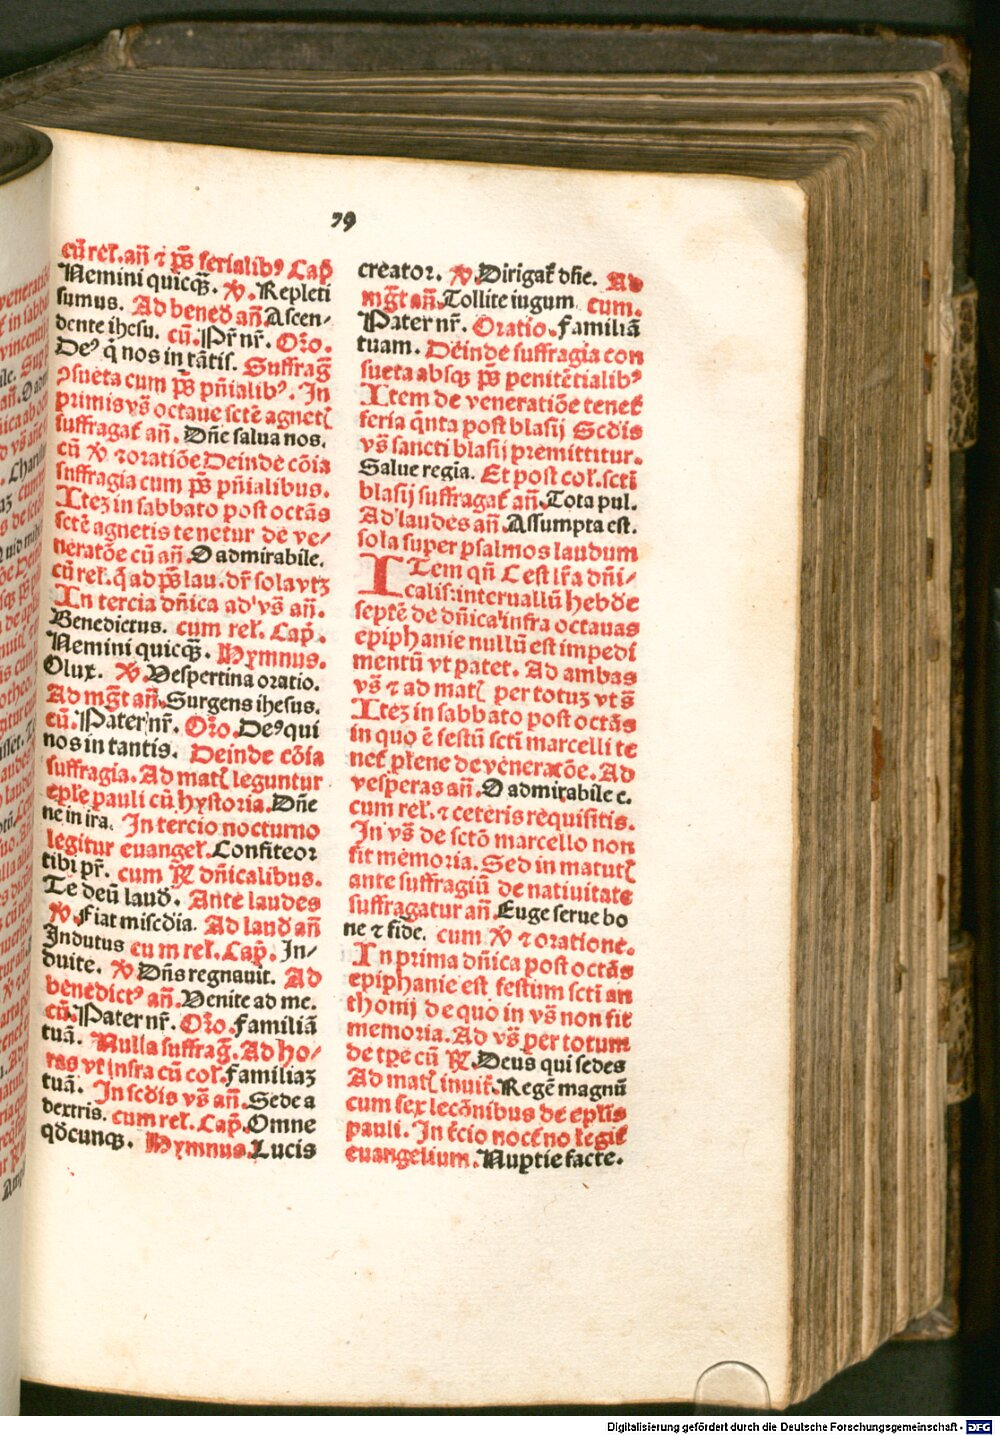 79
cū rel̄. an̄ ⁊ p̄s ferialibꝰ Cap̄
Nemini quicqꝫ. ℣. Repleti
sumus. Ad bened̄ an̄. Ascen⸗
dente ihesu. cū. Pr̄ nr̄. Oro.
Deꝰ q̇ nos in tātis. Suffraḡ
ꝯsueta cum p̄s pn̄ialibꝰ. In
primis vs̄ octaue sctē agnetꝭ
suffragat̄ an̄. Dn̄e salua nos.
cū ℣ ⁊ oratiōe Deinde cōia
suffragia cum p̄s pn̄ialibus.
Itez in sabbato post octās
sctē agnetis tenetur de ve⸗
neratōe cū an̄. O admirabile.
cū rel̄. q̄ ad p̄s lau. dr̄ sola vtꝫ
In tercia dn̄ica ad vs̄ an̄.
Benedictus. cum rel̄. Cap̄.
Nemini quicqꝫ. Hymnus.
O lux. ℣. Vespertina oratio.
Ad mḡt an̄. Surgens ihesus.
cū. Pater nr̄. Oro. Deꝰ qui
nos in tantis. Deinde cōia
suffragia. Ad matꝭ leguntur
ep̄le pauli cū hystoria. Dn̄e
ne in ira. In tercio nocturno
legitur euangel̄. Confiteor
tibi pr̄. cum ℟ dn̄icalibus.
Te deū laud̄. Ante laudes
℣. Fiat misc̄dia. Ad laud̄ an̄
Indutus cum rel̄. Cap̄. In⸗
duite. ℣ Dn̄s regnauit. Ad
benedictꝰ an̄. Venite ad me.
cū. Pater nr̄. Oro. Familiā
tuā. Nulla suffraḡ. Ad ho⸗
ras vt infra cū col̄. Familiaꝫ
tuā. In sc̄dis vs̄ an̄. Sede a
dextris. cum rel̄. Cap̄. Omne
qd̄cunqꝫ. Hymnus. Lucis
creator. ℣. Dirigat̄ dn̄e. Ad
mḡt an̄. Tollite iugum cum.
Pater nr̄. Oratio. Familiā
tuam. Deinde suffragia con
sueta absqꝫ p̄s penitētialibꝰ
Item de veneratiōe tenet̄
feria q̇nta post blasij Sc̄dis
vs̄ sancti blasij premittitur.
Salue regia. Et post col̄. scti
blasij suffragat̄ an̄. Tota pul.
Ad laudes an̄. Assumpta est.
sola super psalmos laudum
ITem qn̄ C est lr̄a dn̄i⸗
calis: interuallū hebd̄e
septē de dn̄ica infra octauas
epiphanie nullū est impedi
mentū vt patet. Ad ambas
vs̄ ⁊ ad matꝭ per totuꝫ vt s̄
Iteꝫ in sabbato post octās
in quo ē festū scti marcelli te
net̄ plene de veneratōe. Ad
vesperas an̄. O admirabile c.
cum rel̄. ⁊ ceteris requisitis.
In vs̄ de sctō marcello non
fit memoria. Sed in matutꝭ
ante suffragiū de natiuitate
suffragatur an̄. Euge serue bo
ne ⁊ fide. cum ℣ ⁊ oratione.
In prima dn̄ica post octās
epiphanie est festum scti an
thonij de quo in vs̄ non fit
memoria. Ad vs̄ per totum
de tp̄e cū ℟. Deus qui sedes
Ad matꝭ inuit̄. Regē magnū
cum sex lecōnibus de ep̄lis
pauli. In t̄cio noct̄no legit̄
euangelium. Nuptie facte.
Digitalisierung gefördert durch die Deutsche Forschungsgemeinschaft - DFG